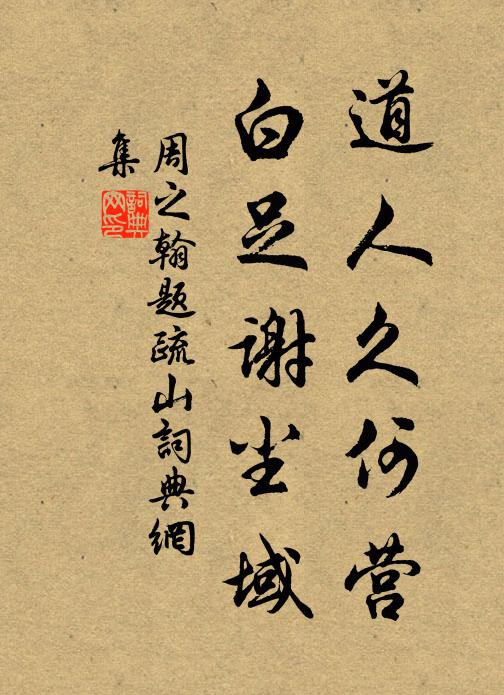 道人久何营
白足谢尘域
周之翰题疏山詞典網
集
詞典
网印